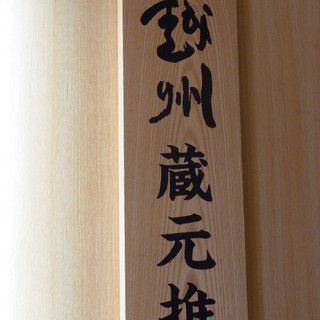 越州蔵元推